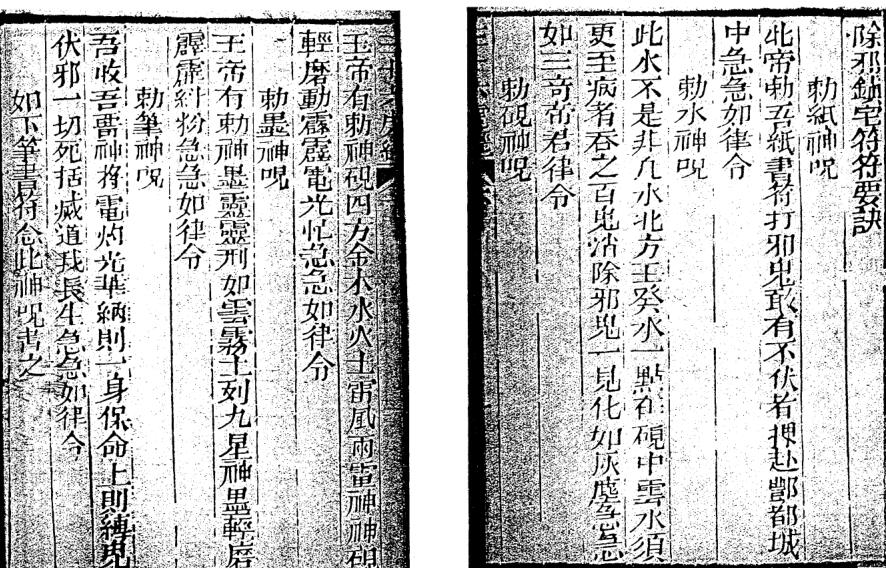 除邪鎮宅符符要訣
勅紙神呪
北帝勅吾紙書符打邪鬼敢有不伏者押赴酆都城
中急急如律令
勅水神呪
此水不是非凡水北方壬癸水一點在硯中雲水須
更至病者吞之百鬼消除邪鬼一見化如灰塵急急
如三奇帝君律令
勅硯神呪
玉帝有勅神硯四方金木水火土雷風雨電神神硯
輕磨動霹靂電光忙急急如律令
勅墨神呪
王帝有勅神墨靈靈刑如雲霧上列九星神墨輕磨
霹靂糾粉急急如律令
勅筆神呪
吾收吾雷神將電灼光華納則一身保命上則縛鬼
伏邪一切死括滅道我長生急急如律令
如下筆書符念此神呪書之